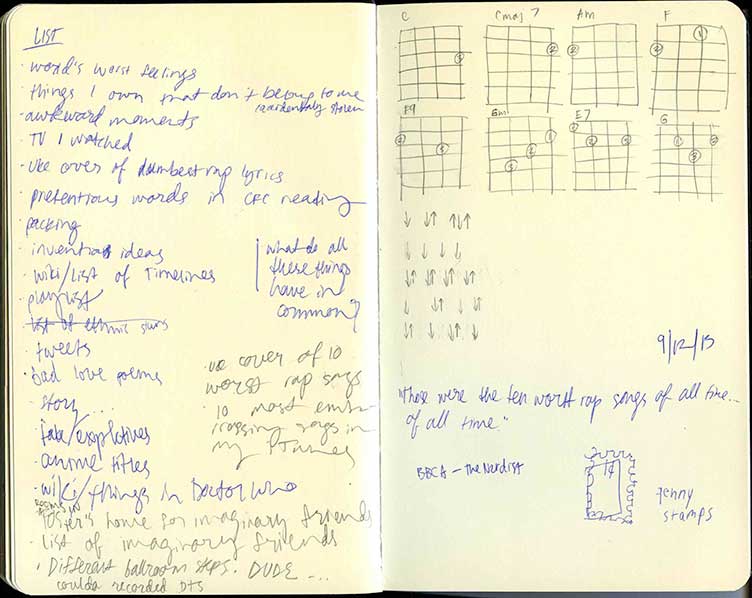 LIST
· world's worst feelings
· things I own that don't belong to me
accidentally stolen
· awkward moments
· TV I watched
· Uke cover of dumbest rap lyrics
· pretentious words in CFC reading
packing
· invention ideas
· wiki/list of Timelines
· playlist
list of ethnic slurs
· tweets
· bad love poems
· story ...
· fake/expletives
· anime titles
· wiki/things in Doctor Who
rooms in
Foster's home for imaginary friends
· list of imaginary friends
· Different ballroom steps. DUDE ....
coulda recorded DTS
what do all
these things
have in
common?
· uke cover of 10
worst rap songs
10 most emba-
rrassing songs in
my iTunes
C
Cmaj 7
Am
F
3
2
2
2
1
F9
Gmi
E7
G
2
3
1
2
3
1
2
3
1
2
3
↓ ↓↑ ↑↓↑
↓ ↓ ↓ ↓
↓↑ ↓↑ ↓↑ ↓↑
↓ ↓↑ ↓ ↓↑
↓↑ ↓ ↓↑ ↓
9/12/13
"Those were the ten worst rap songs of all time...
of all time."
BBCA – the Nerdist
1¢
Penny
stamps